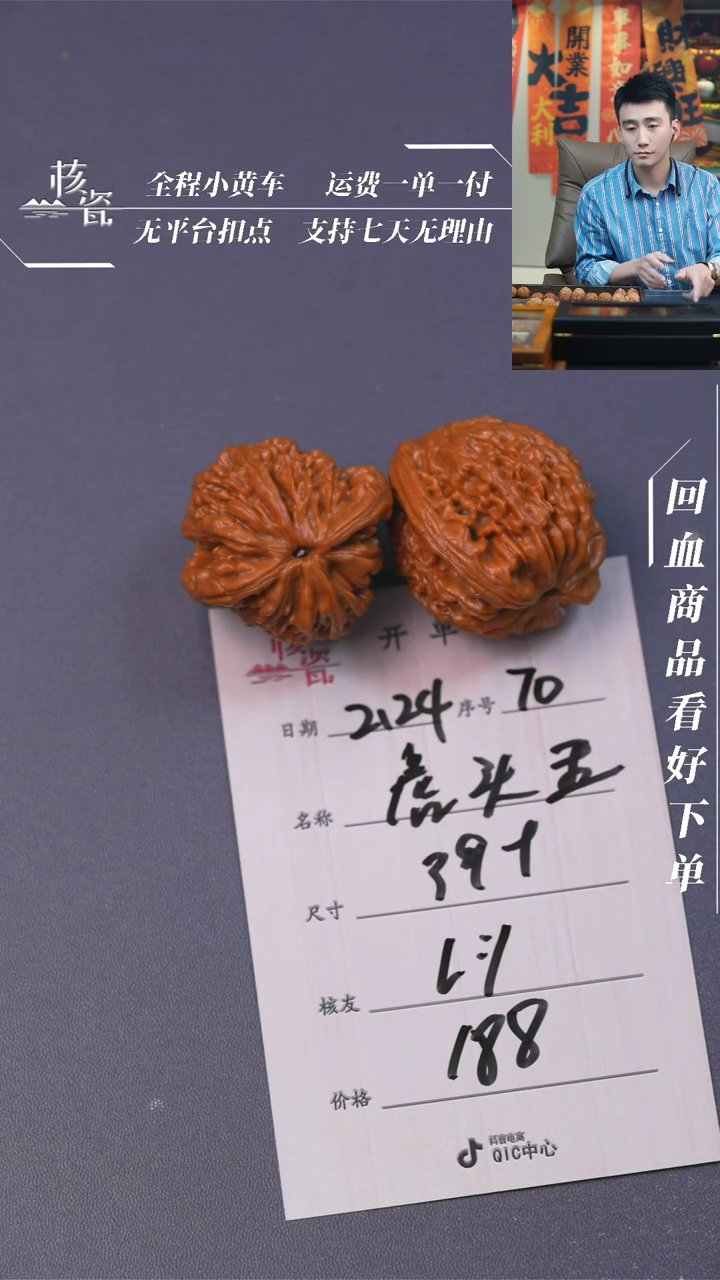 核瓷
全程小黄车 运费一单一付
无平台扣点 支持七天无理由
開業
大吉
大利
事事如意
財興旺
回血商品看好下单
核瓷
开单
日期 2.24 序号 70
名称 虎头王
尺寸 39+
核友
价格 188
抖音电商
QIC中心